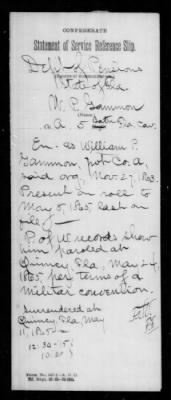 CONFEDERATE
Statement of Service Reference Slip.
Dept of Pensions
State of Fla
W. P. Gammon
(Name.)
Co A. 5 Batn Fla. Cav.
En- as William P.
Gammon, pvt Co. a,
said org. Nov. 27, 1863.
Present on roll to
May 5, 1865, last on
file.
P of W records show
him paroled at
Quincy, Fla, May 24,
1865 per terms of a
militar convention.
Surrendered at
Quincy, Fla, May
11, 1865
12-30-15